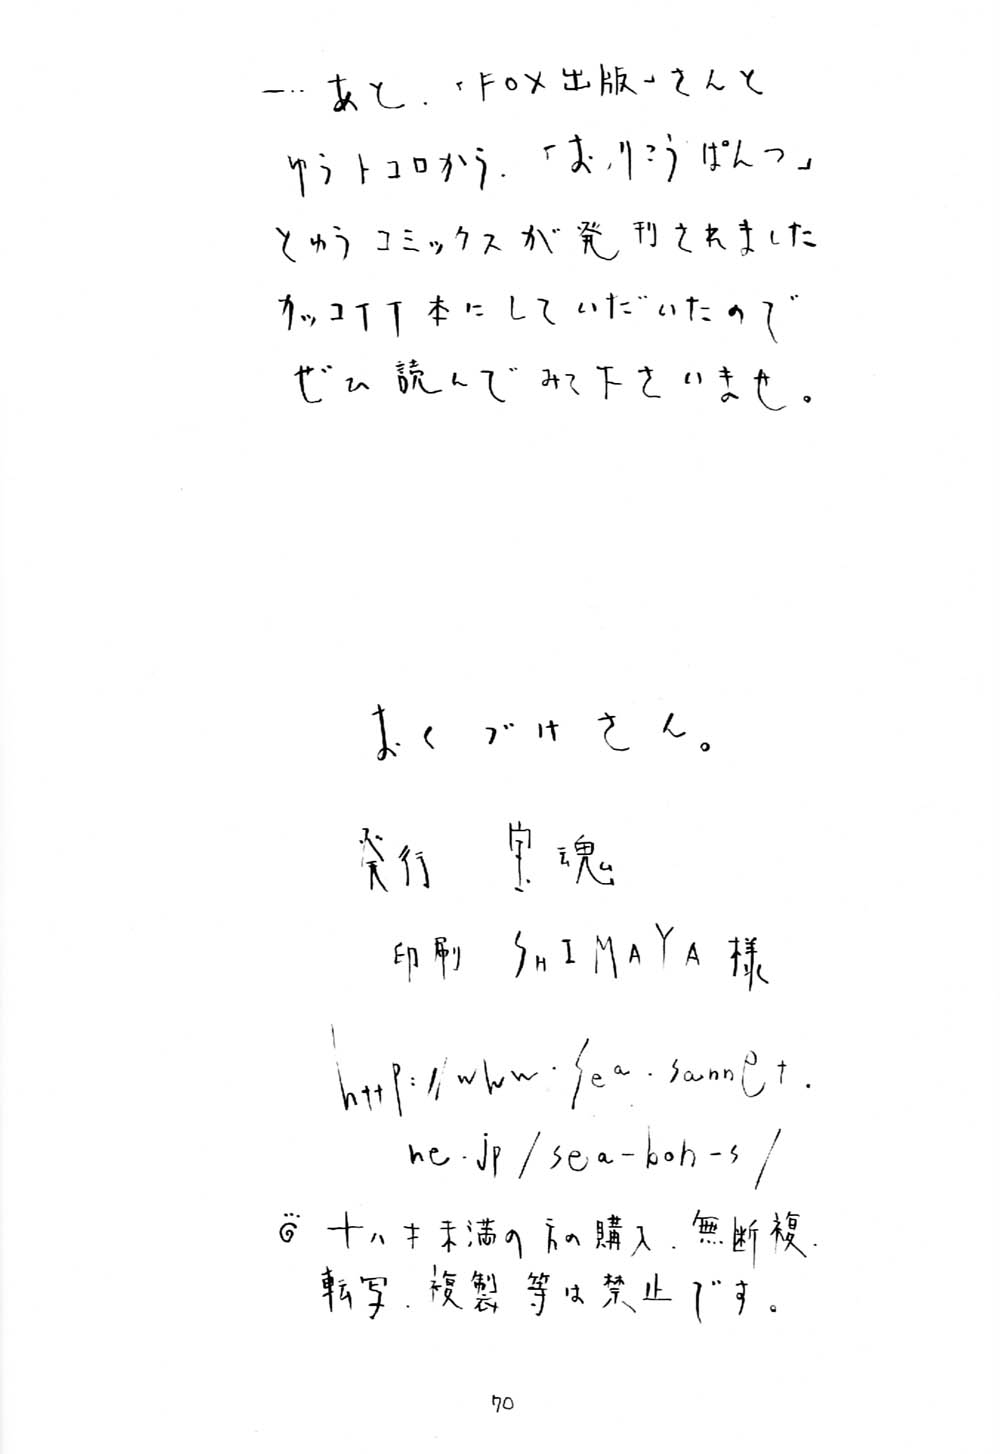 …あと、「FOX出版」さんと
ゆうトコロから、「おりこうぱんつ」
とゆうコミックスが発刊されました
カッコイイ本にしていだいたので
ぜひ読んでみて下さいませ。
おくづけさん。
発行 宝魂
印刷 SHIMAYA様
http://www.sea.sannet.
ne.jp/sea-boh-s/
十八才未満の方の購入、無断複、
転写、複製等は禁止です。
70